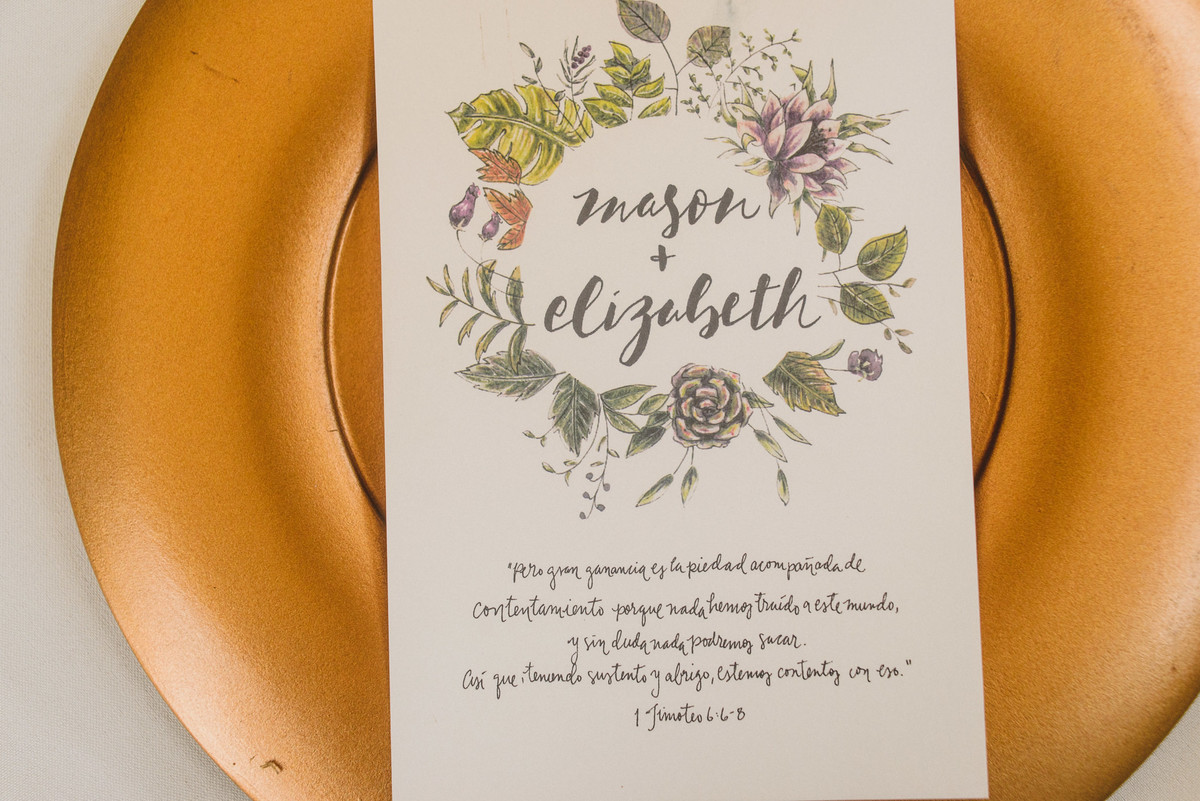 mason
+
elizabeth
"Pero gran ganancia es la piedad acompañada de
contentamiento porque nada hemos traído a este mundo,
y sin duda nada podremos sacar.
Así que, teniendo sustento y abrigo, estemos contentos con eso."
1 Timoteo 6:6-8